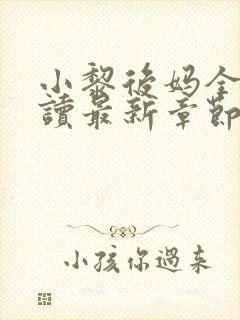 小黎後妈全
讀最新章節
小孩你過來